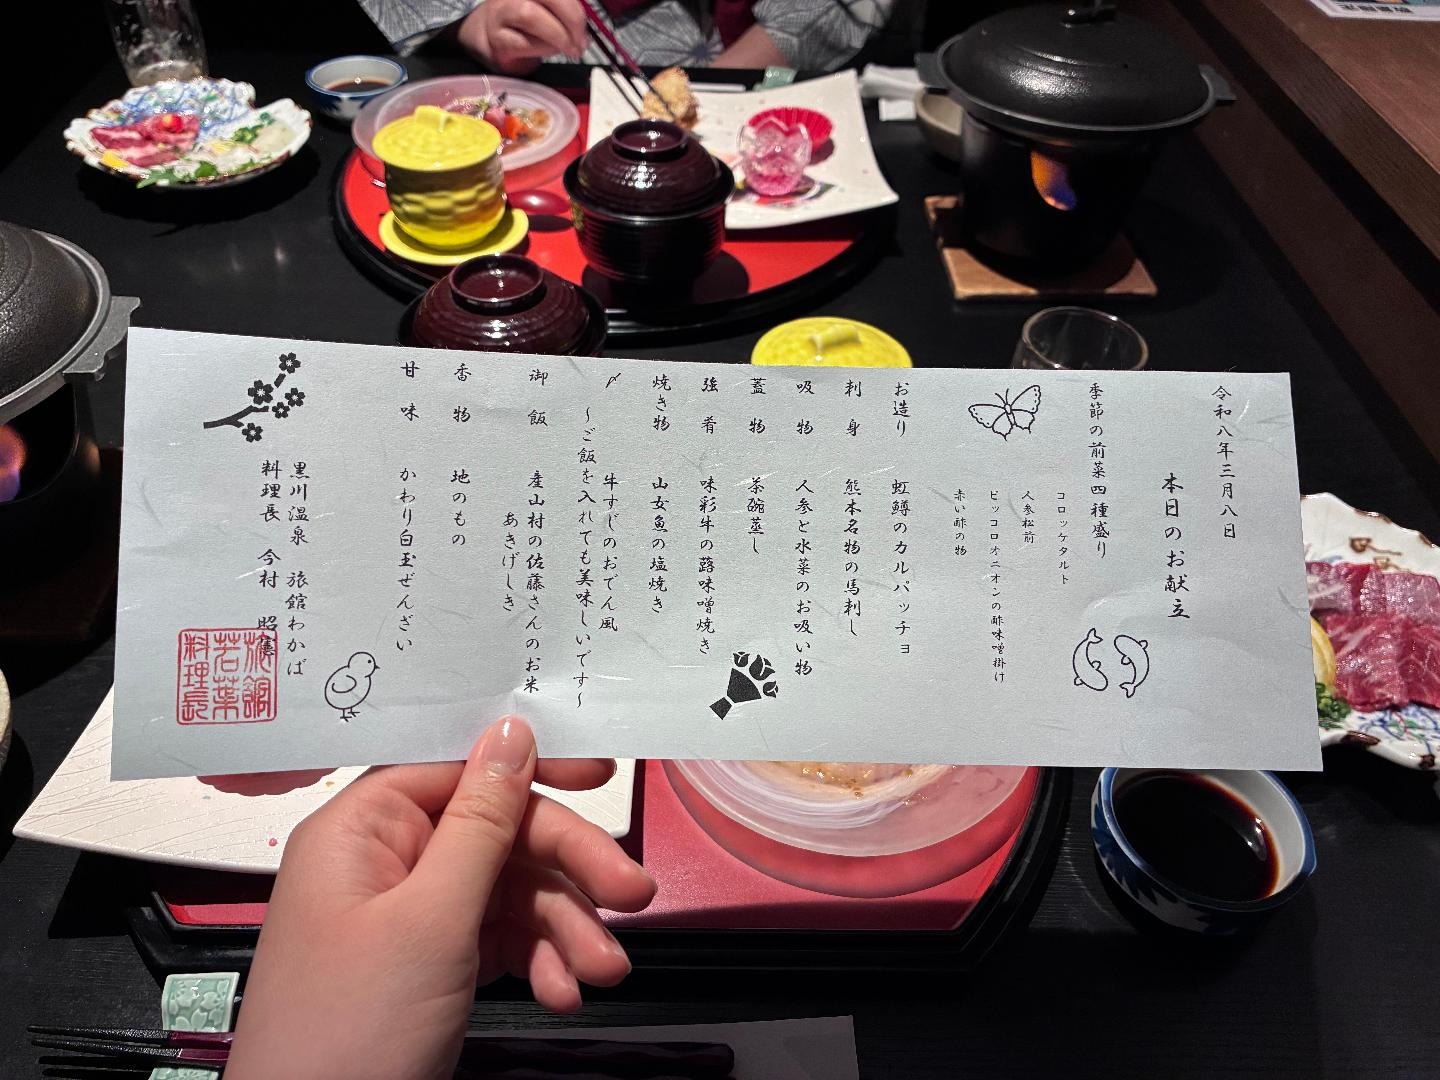 令和八年三月八日
本日のお献立
季節の前菜四種盛り
コロッケタルト
人参松前
ピッコロオニオンの酢味噌掛け
赤い酢の物
お造り 虹鱒のカルパッチョ
刺身 熊本名物の馬刺し
吸物 人参と水菜のお吸い物
蓋物 茶碗蒸し
強肴 味彩牛の蕗味噌焼き
焼き物 山女魚の塩焼き
〆 牛すじのおでん風
～ご飯を入れても美味しいです～
御飯 産山村の佐藤さんのお米
あきげしき
香物 地のもの
甘味 かわり白玉ぜんざい
黒川温泉 旅館わかば
料理長 今村 昭
旅館
若葉
料理長